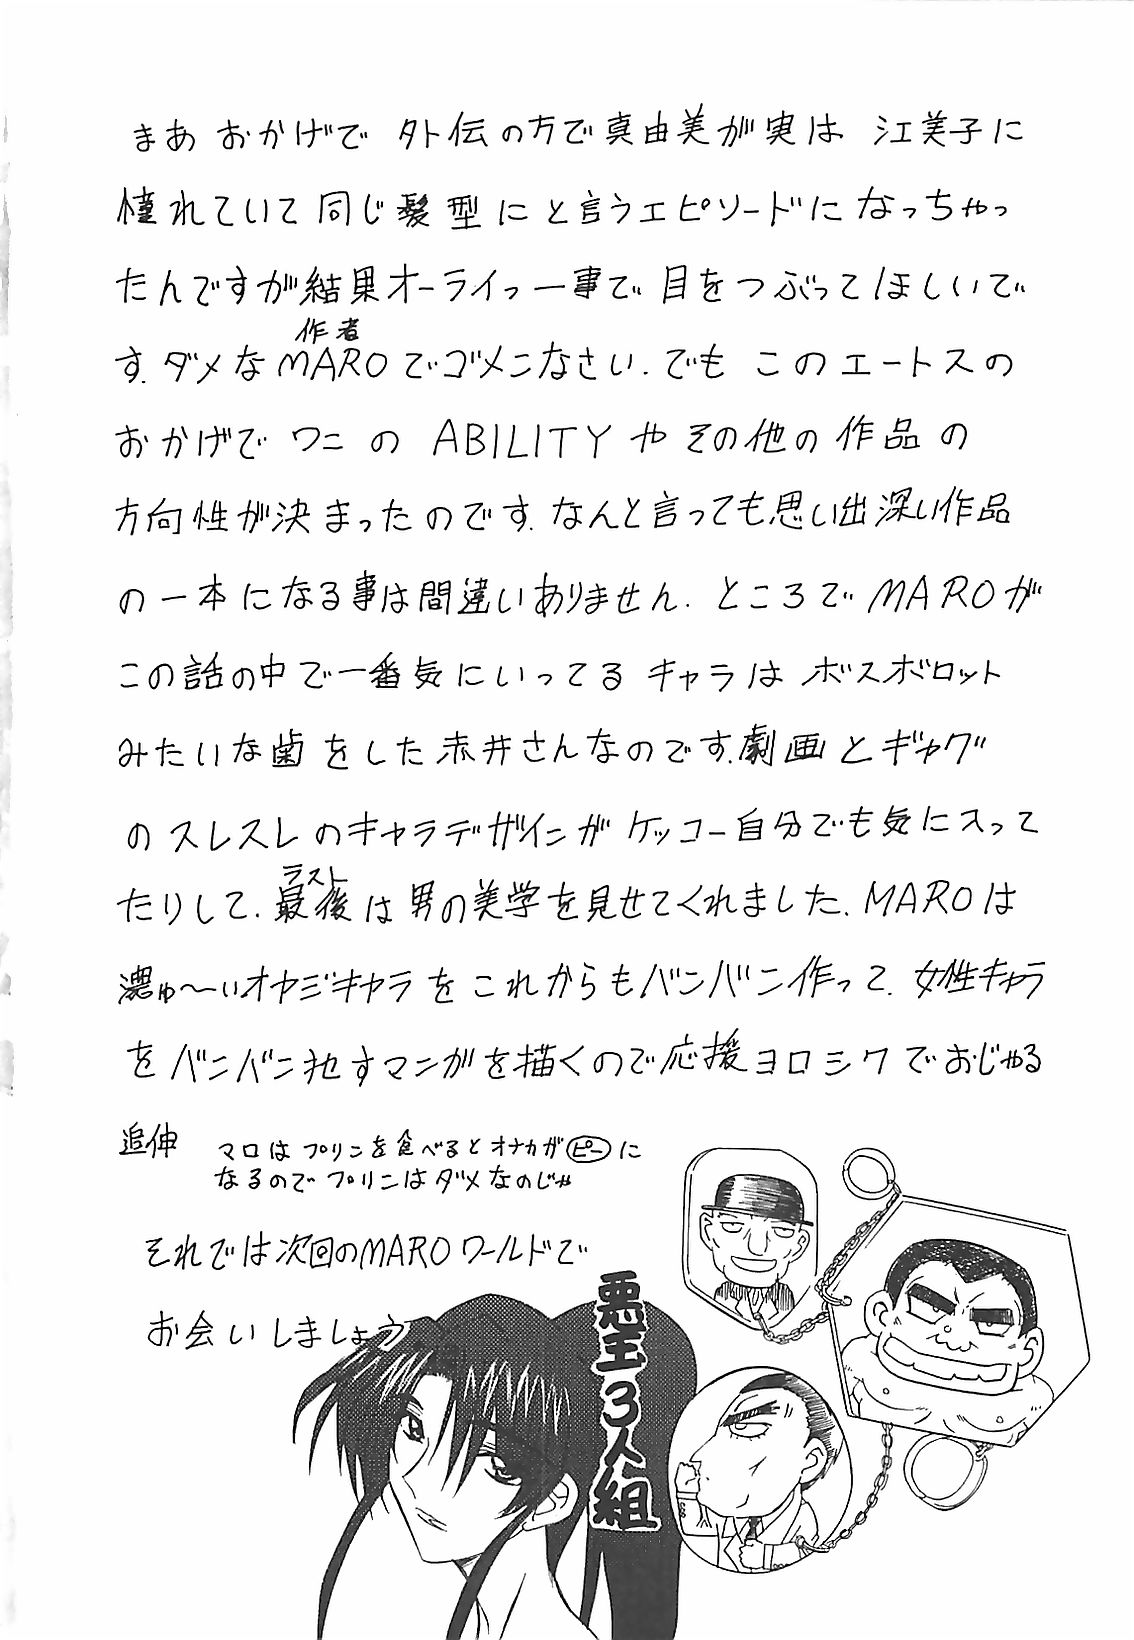 まあ おかげで 外伝の方で真由美が実は 江美子に
憧れていて同じ髪型にと言うエピソードになっちゃっ
たんですが結果オーライっー事で目をつぶってほしいで
作者
す.ダメなMAROでゴメンなさい.でも このエートスの
おかげで ワニ の ABILITYや その他の作品の
方向性が決まったのです.なんと言っても思い出深い作品
の一本になる事は間違いありません.ところでMAROが
この話の中で一番気にいってる キャラは ボスボロット
みたいな歯をした赤井さんなのです.劇画とギャグ
のスレスレのキャラデザインが ケッコー自分でも気に入って
ラスト
たりして.最後は男の美学を見せてくれました.MAROは
濃ゅ〜いオヤジキャラをこれからもバンバン作って.女性キャラ
をバンバン犯すマンガを描くので応援ヨロシクでおじゃる
追伸 マロはプリンを食べるとオナカがピーに
なるのでプリンはダメなのじゃ
それでは次回のMAROワールドで
お会いしましょう
悪玉3人組